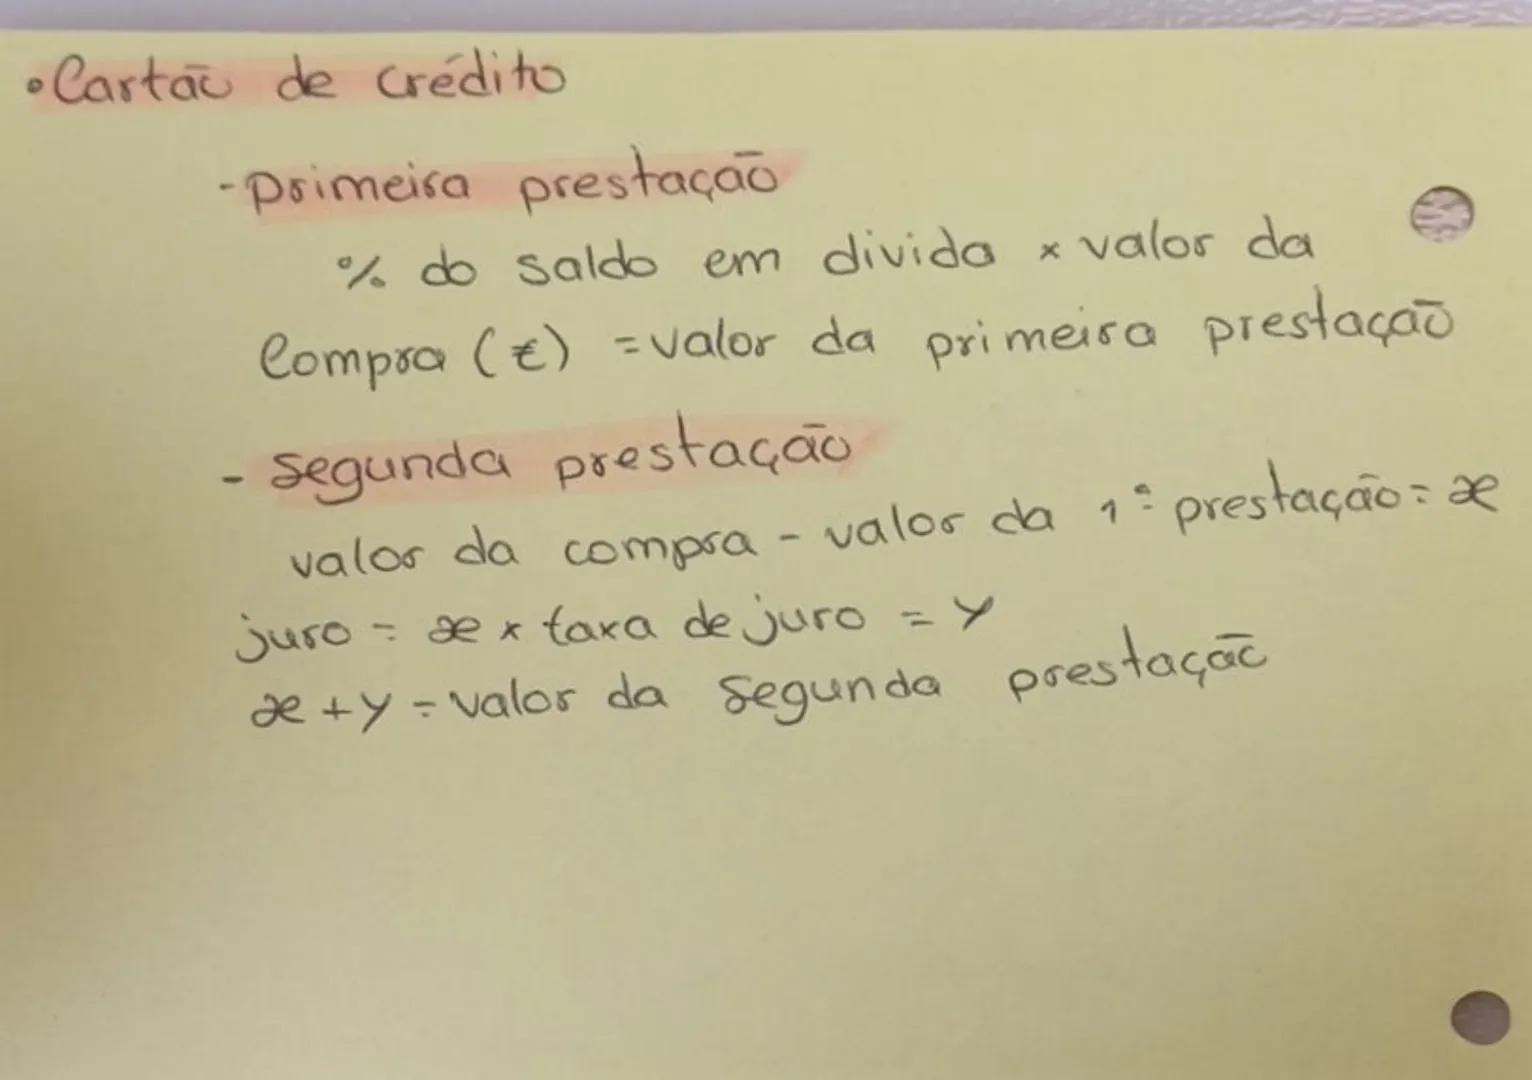 • Cartão de crédito
- primeira prestação
% do saldo em divida × valor da
Compra (€) = valor da primeira prestação
- segunda prestação
valor da compra - valor da 1ª prestação = x
juro = x × taxa de juro = y
x + y = valor da segunda prestação